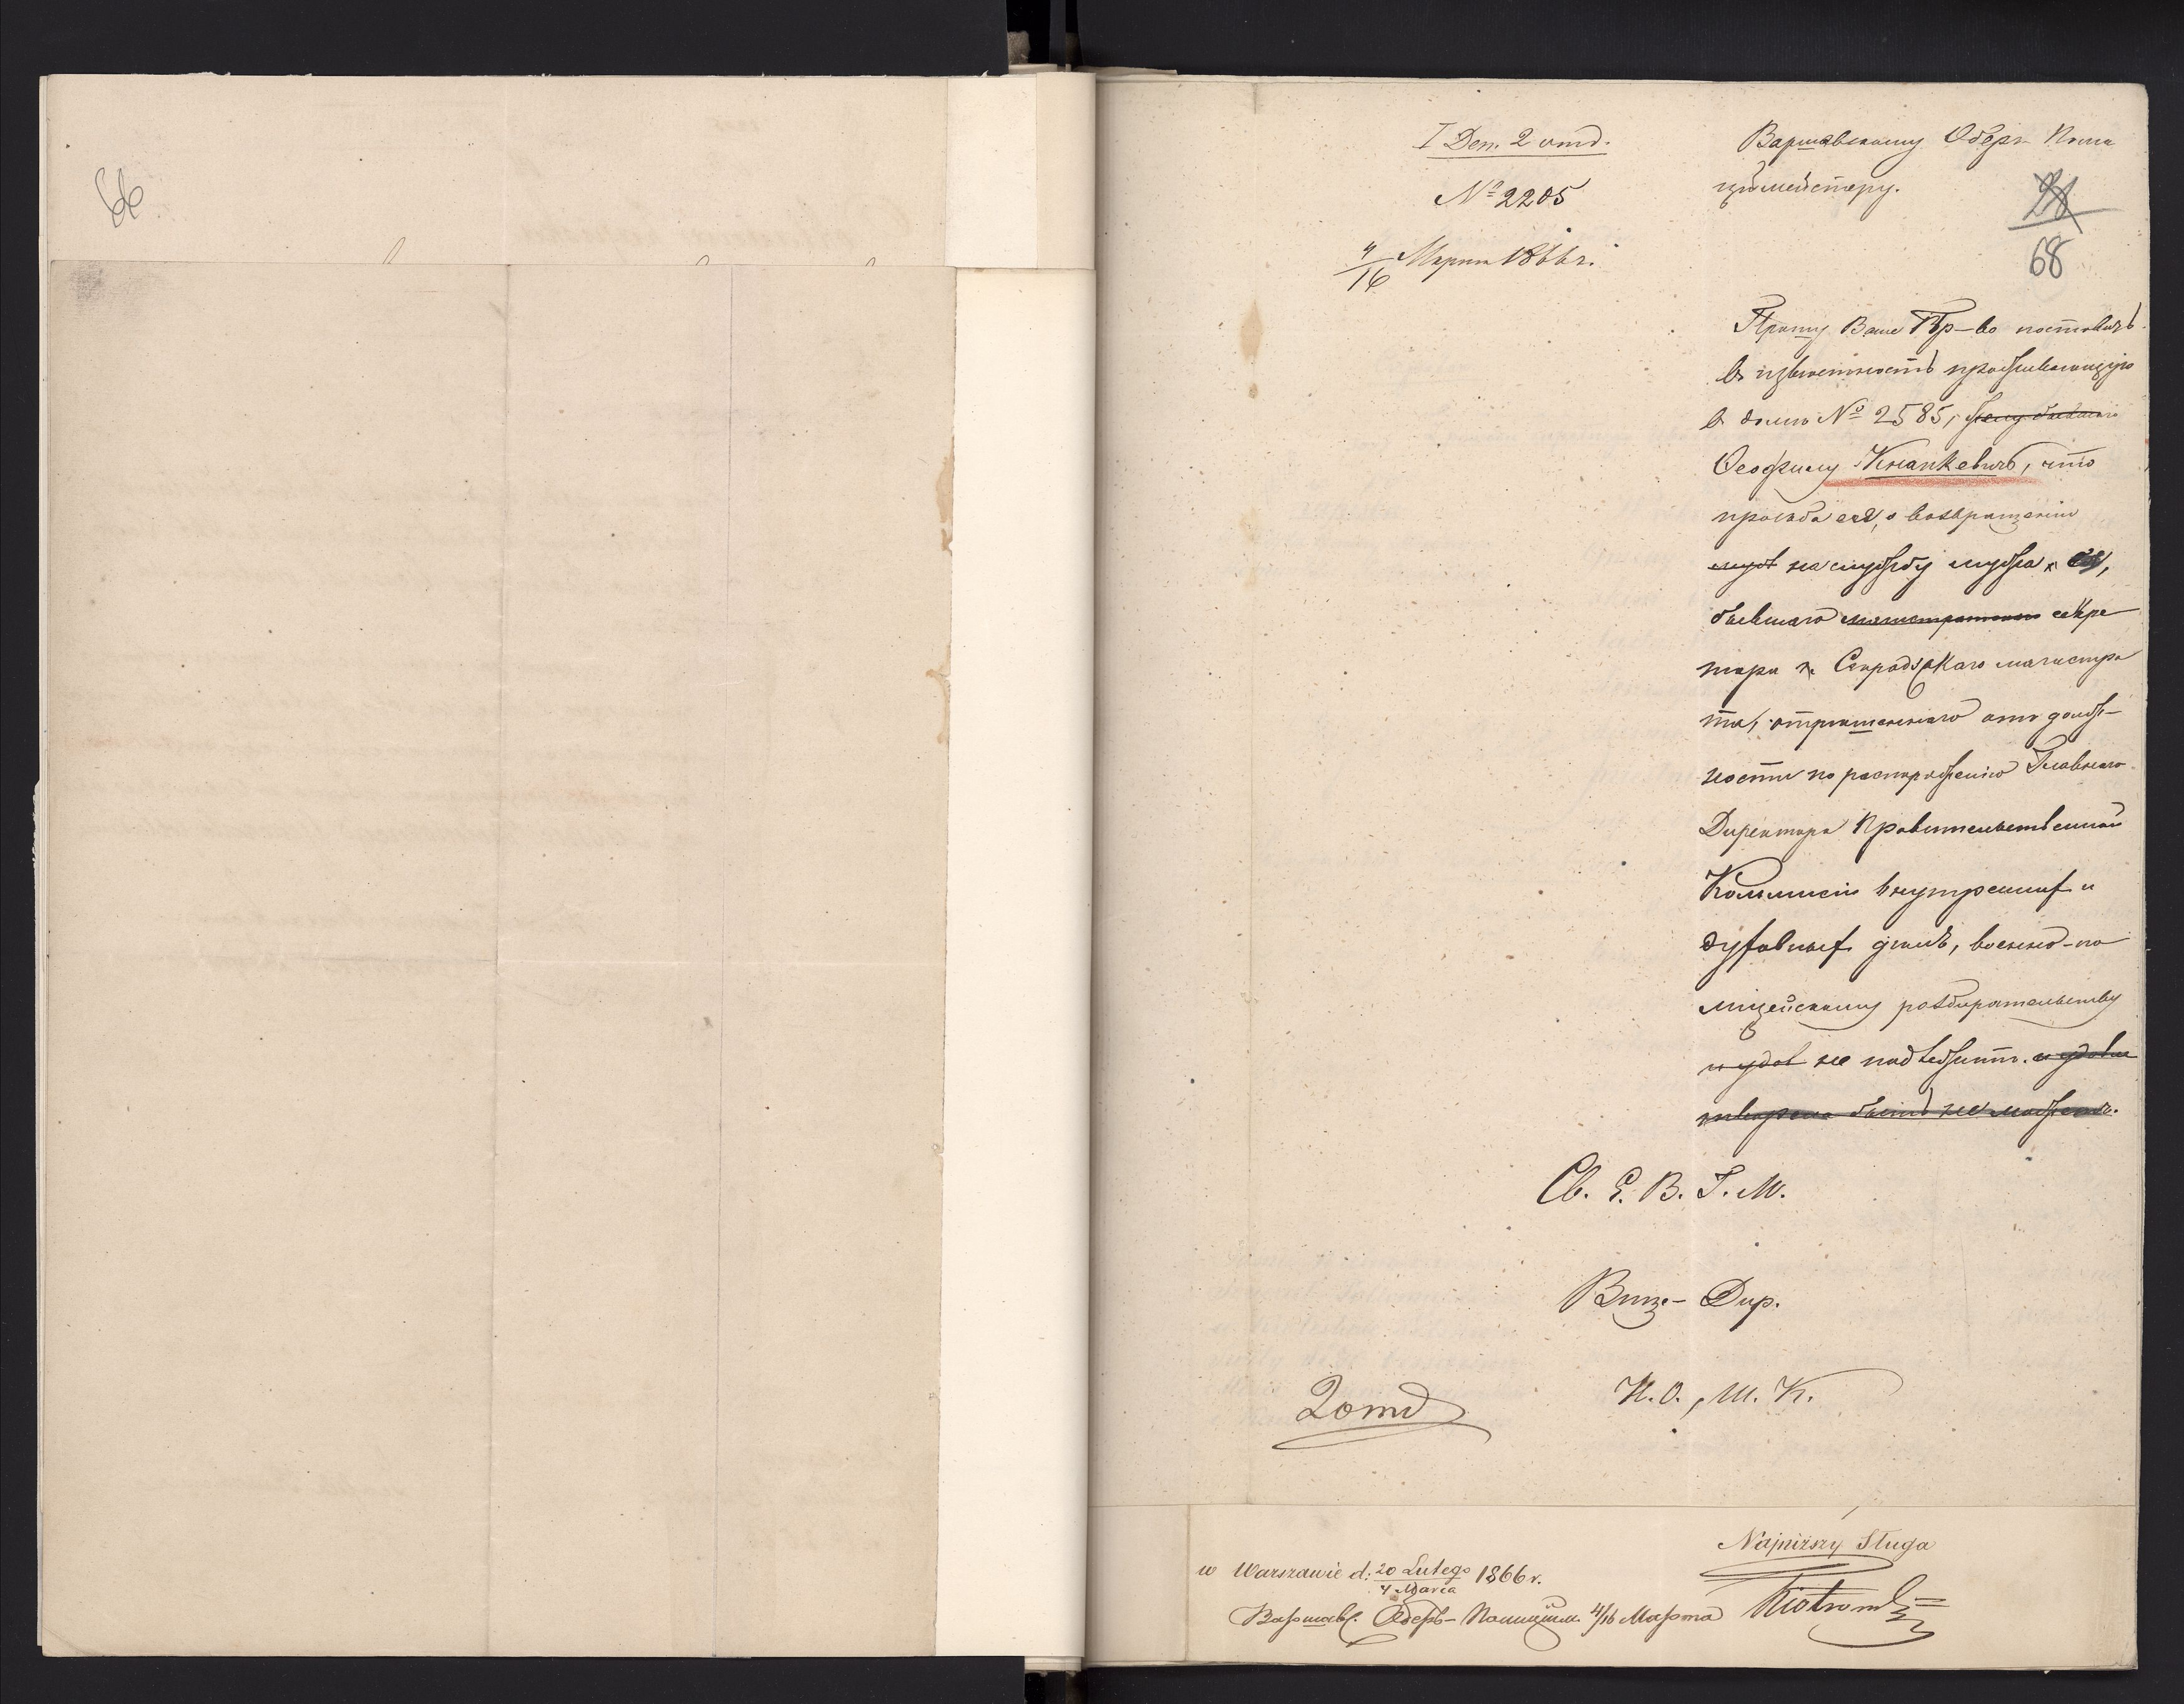 66
I Деп. 2 отд.
№ 2205
4/16 Марта 1866 г.
Варшавскому Оберъ-Поли
цiймейстеру.
28
68
Прошу Ваше Пр–во поставить
въ извѣстность проживающую
въ домѣ № 2585, жену бывшаго
Теофилу Кнапкевичъ, что
просьба ея, о возвращенiи
на службу мужа ея,
бывшаго магистратскаго секре
таря Серадзскаго магистра
та, отрѣшеннаго отъ долж–
ности по распоряженiю Главнаго
Директора Правительственной
Коммисiи внутреннихъ и
духовныхъ дѣлъ, военно-по
лицейскому разбирательству
и удов не подлежитъ. и удовле
творена быть не можетъ.
Св. Е. В. Г. М.
Вице- Дир.
Н. О., Ш. К.
2 отд
Najniższy Sługa
w Warszawie d: 20 Lutego/4 Marca 1866 r.
Варшав. Оберъ-Полицiйм. 4/16 Марта